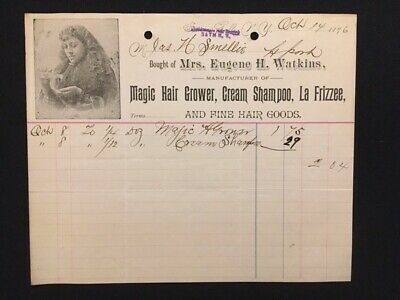 Falls, N.Y. Oct 14 1896
BATH, N.Y.
M Jas. H Smellie
Bought of Mrs. Eugene H. Watkins,
MANUFACTURER OF
Magic Hair Grower, Cream Shampoo, La Frizzee,
Terms AND FINE HAIR GOODS.
Oct 8 To 1/4 Doz Magic H Grower 1 75
" 8 " 1/12 " Cream Shampoo 29
2 04